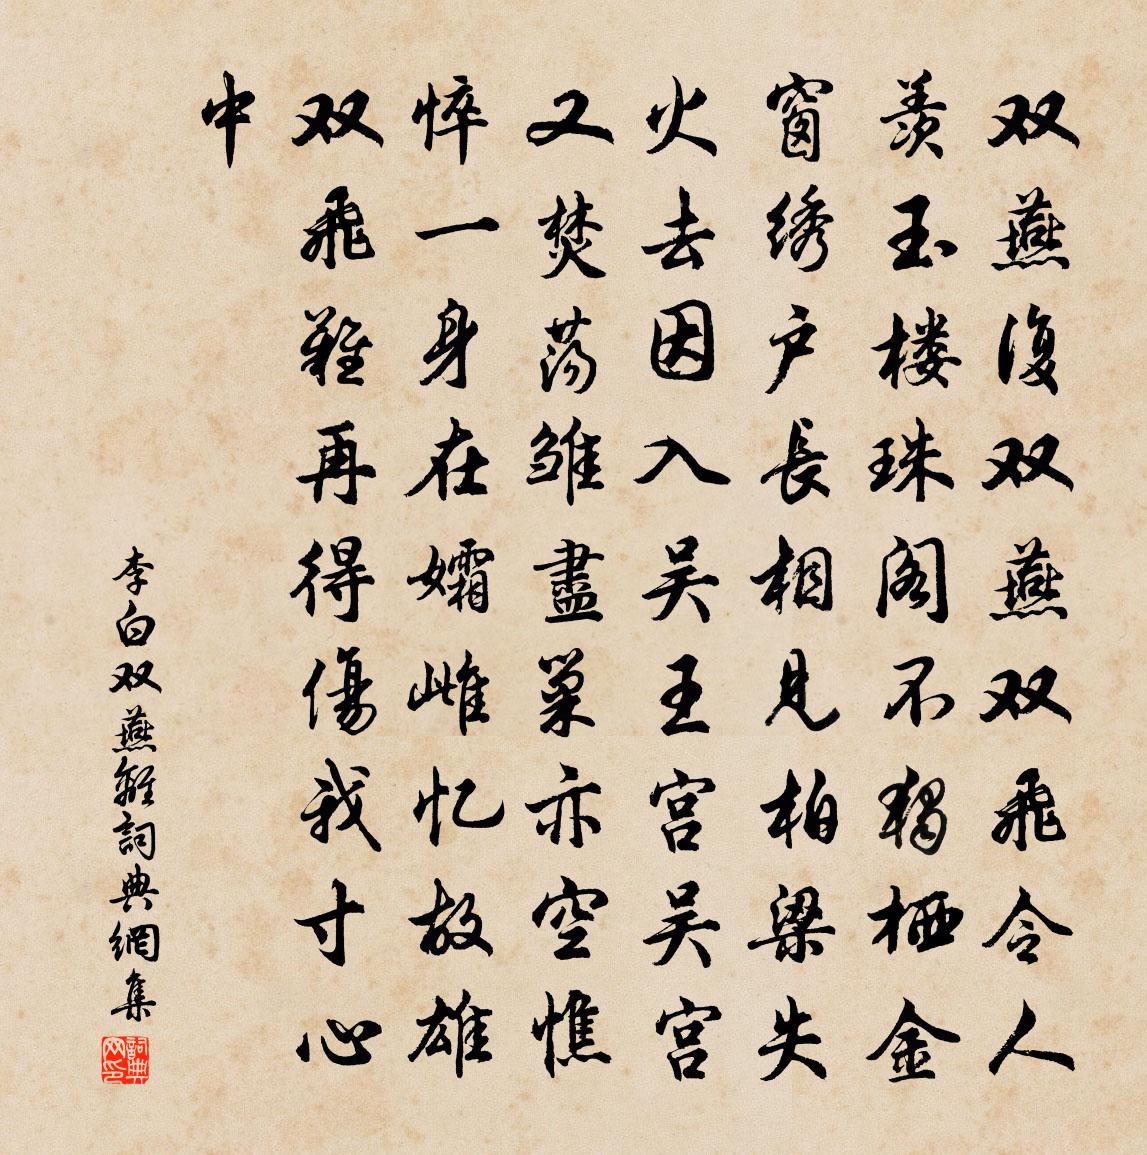 双燕復双燕双飛令人
羨玉楼珠阁不獨栖金
窗绣户長相見柏梁失
火去因入吴王宫吴宫
又焚荡雏盡巢亦空憔
悴一身在孀雌忆故雄
双飛難再得傷我寸心
中
李白双燕離詞典網集
詞典网印